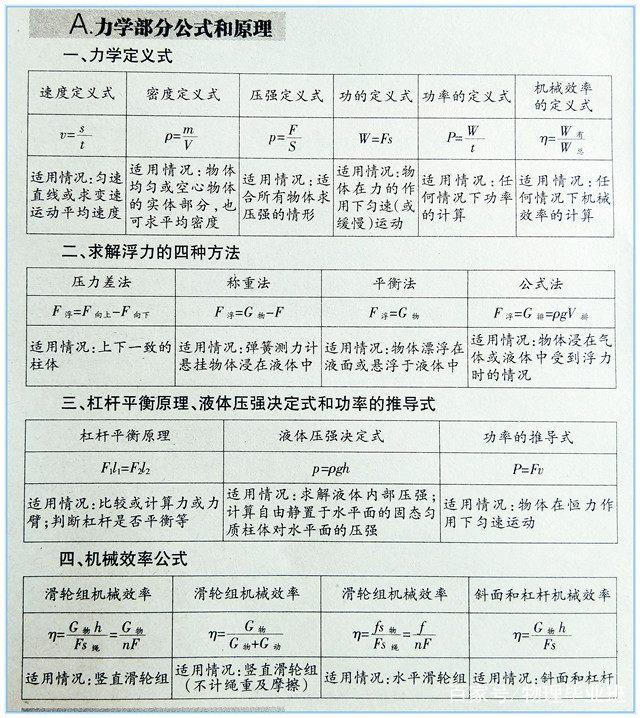 A.力学部分公式和原理
一、力学定义式
速度定义式 密度定义式 压强定义式 功的定义式 功率的定义式 机械效率的定义式
v=s/t ρ=m/V p=F/S W=Fs P=W/t η=W有/W总
适用情况:匀速直线或求变速运动平均速度
适用情况:物体均匀或空心物体的实体部分,也可求平均密度
适用情况:适合所有物体求压强的情形
适用情况:物体在力的作用下匀速(或缓慢)运动
适用情况:任何情况下功率的计算
适用情况:任何情况下机械效率的计算
二、求解浮力的四种方法
压力差法 称重法 平衡法 公式法
F浮=F向上-F向下 F浮=G物-F F浮=G物 F浮=G排=ρgV排
适用情况:上下一致的柱体
适用情况:弹簧测力计悬挂物体浸在液体中
适用情况:物体漂浮在液面或悬浮于液体中
适用情况:物体浸在气体或液体中受到浮力时的情况
三、杠杆平衡原理、液体压强决定式和功率的推导式
杠杆平衡原理 液体压强决定式 功率的推导式
F₁l₁=F₂l₂ p=ρgh P=Fv
适用情况:比较或计算力或力臂;判断杠杆是否平衡等
适用情况:求解液体内部压强;计算自由静置于水平面的固态匀质柱体对水平面的压强
适用情况:物体在恒力作用下匀速运动
四、机械效率公式
滑轮组机械效率 滑轮组机械效率 滑轮组机械效率 斜面和杠杆机械效率
η=G物h/Fs绳=G物/nF η=G物/G物+G动 η=fs物/Fs绳=f/nF η=G物h/Fs
适用情况:竖直滑轮组
适用情况:竖直滑轮组(不计绳重及摩擦)
适用情况:水平滑轮组
适用情况:斜面和杠杆
百家号/物理毕业班